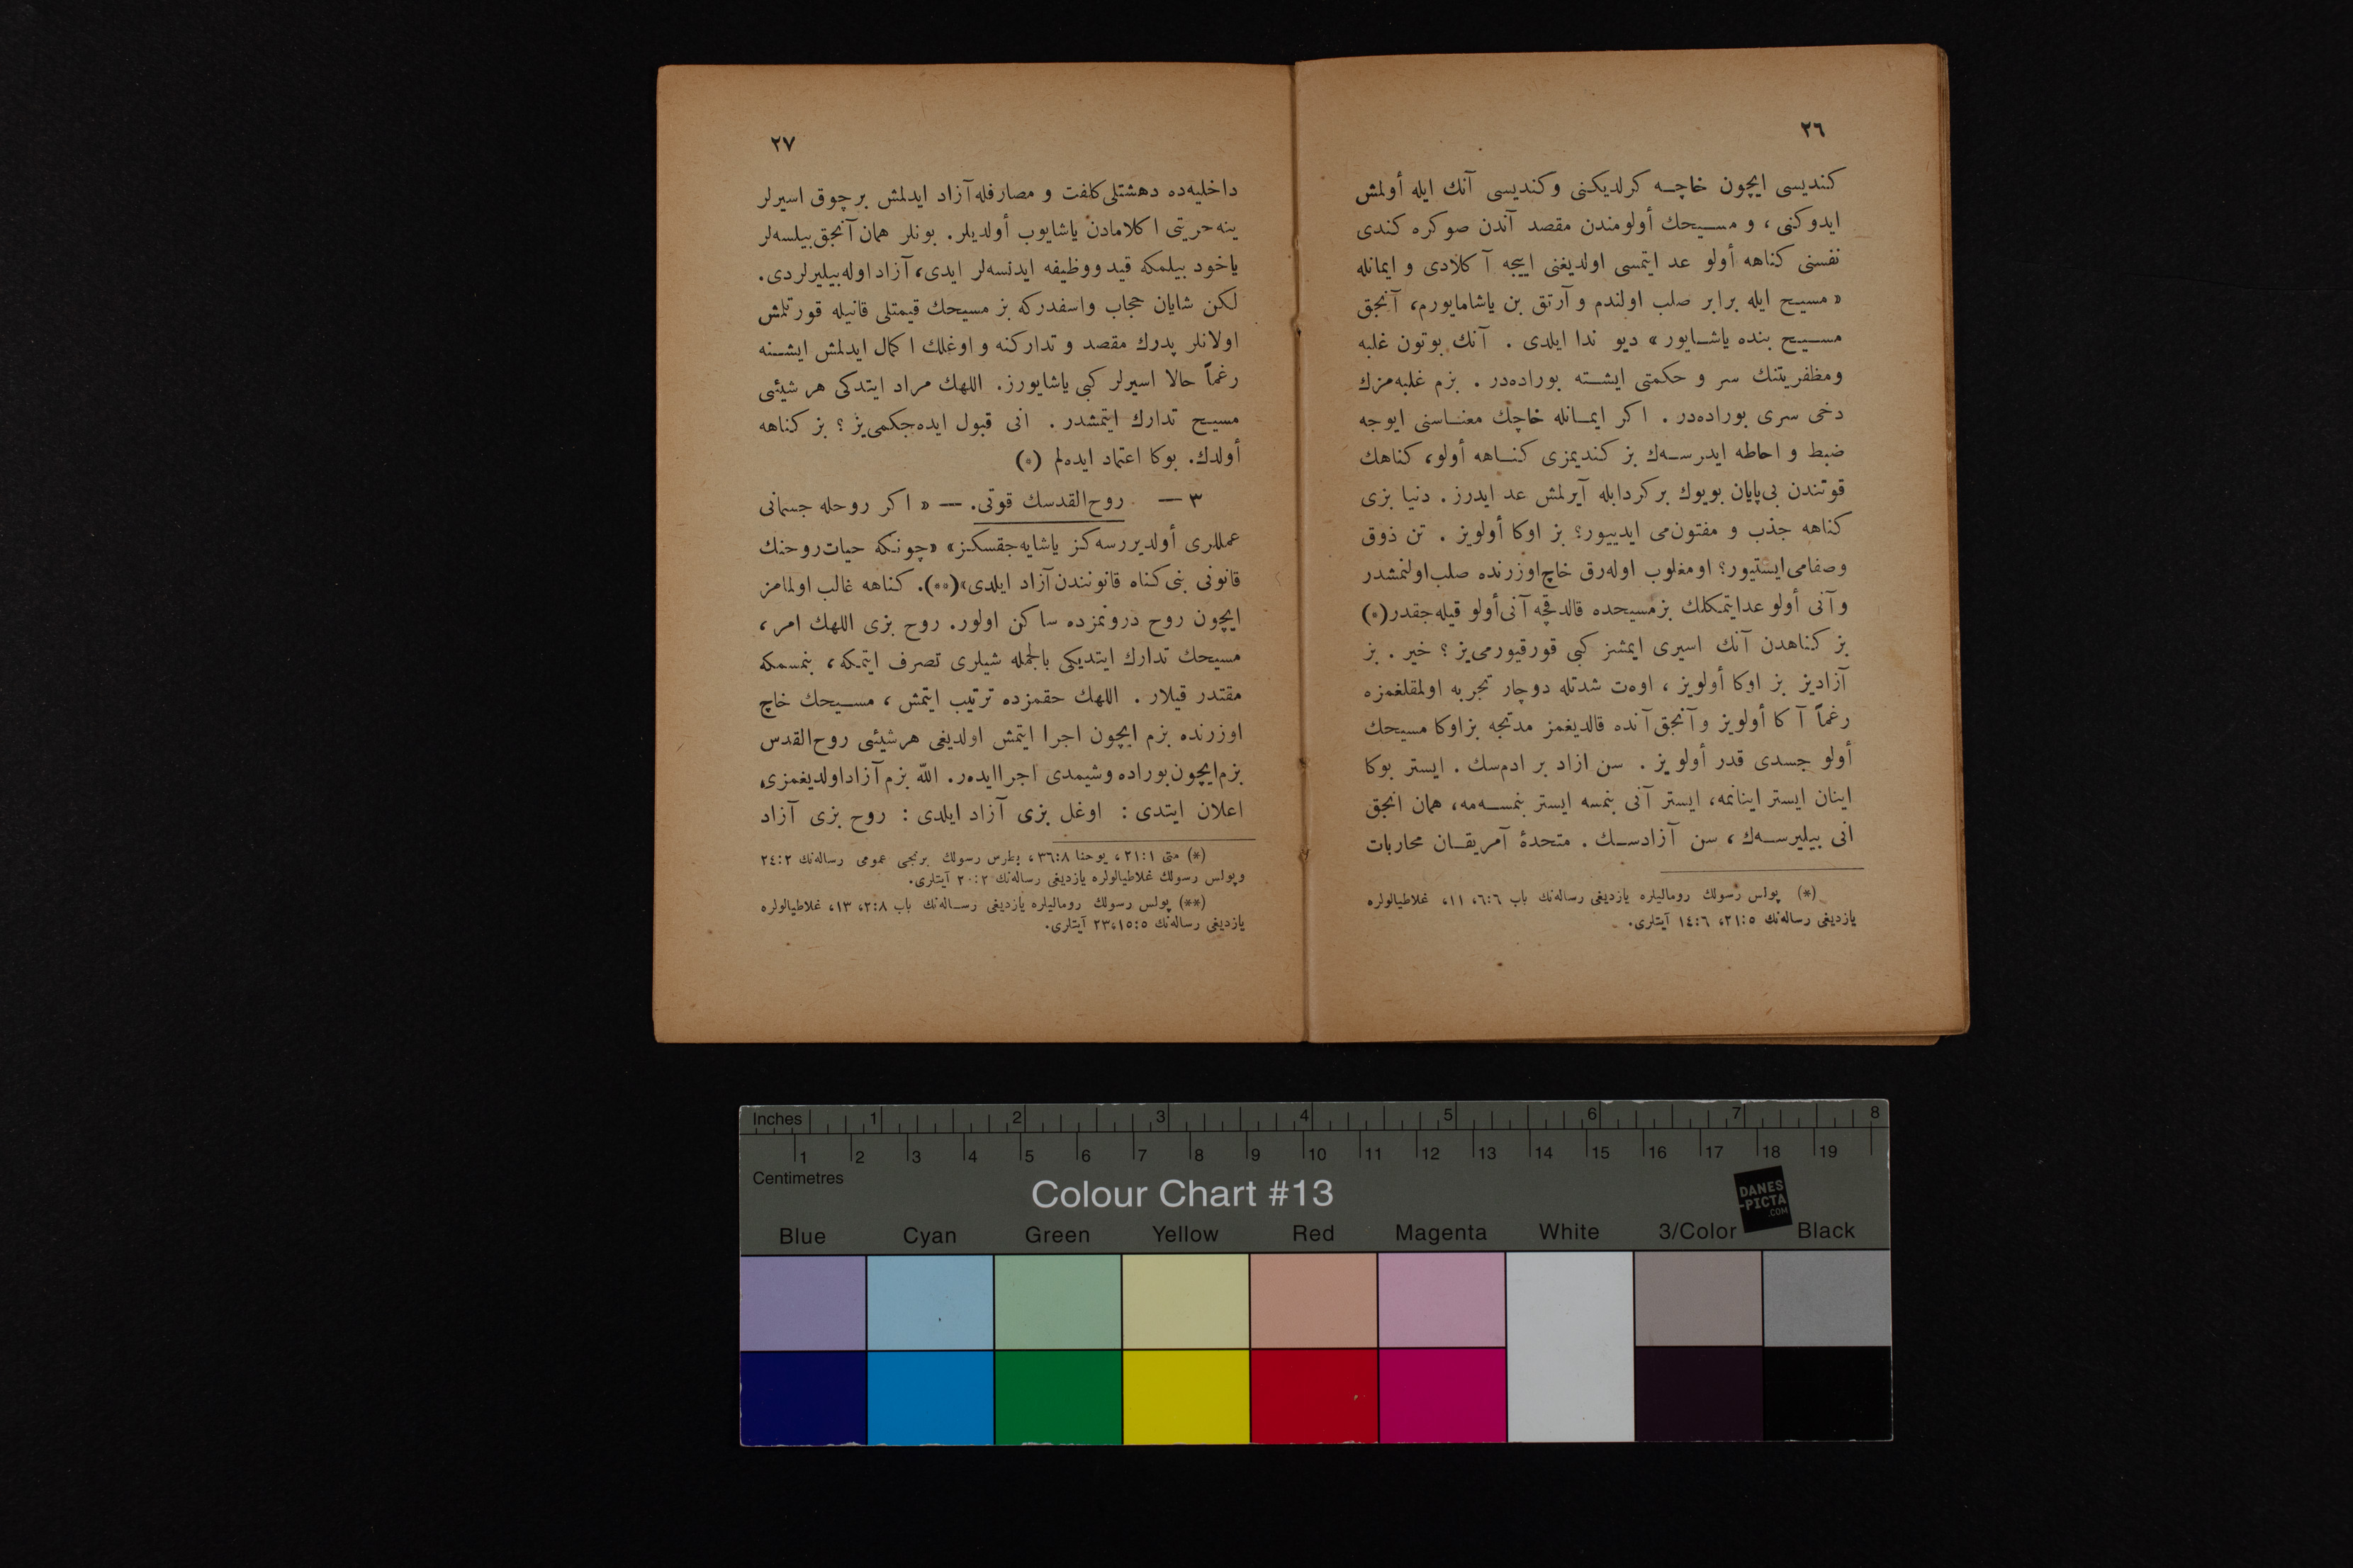 ٢٦
كنديسى ايچون خاچه كرلديكنى وكنديسى آنك ايله أولمش
ايدوكنى، و مسيحك أولومندن مقصد آندن صوكره كندى
نفسنى كناهه أولو عد ايتمسى اولديغنى اييجه آكلادى و ايمانله
«مسيح ايله برابر صلب اولندم و آرتق بن ياشامايورم، آنجق
مسيح بنده ياشايور» ديو ندا ايلدى. آنك بوتون غلبه
ومظفريتنك سر و حكمتى ايشته بوراده‌در. بزم غلبه‌مزك
دخى سرى بوراده‌در. اكر ايمانله خاچك معناسنى ايوجه
ضبط و احاطه ايدرسه‌ك بز كنديمزى كناهه أولو، كناهك
قوتندن بى‌پايان بويوك بر كردابله آيرلمش عد ايدرز. دنيا بزى
كناهه جذب و مفتون‌مى ايدييور؟ بز اوكا أولويز. تن ذوق
وصفامى ايستيور؟ او مغلوب اوله‌رق خاچ اوزرنده صلب اولنمشدر
و آنى أولو عد ايتمكلك بز مسيحده قالدقچه آنى أولو قيله‌جقدر (*)
بز كناهدن آنك اسيرى ايمشز كبى قورقيورمى‌يز؟ خير. بز
آزاديز بز اوكا أولويز، اوه‌ت شدتله دوچار تجربه اولمقلغمزه
رغماً آكا أولويز و آنجق آنده قالديغمز مدتجه بز اوكا مسيحك
أولو جسدى قدر أولويز. سن ازاد بر ادم‌سك. ايستر بوكا
اينان ايستر اينانمه، ايستر آنى بنمسه ايستر بنمسه‌مه، همان انجق
انى بيليرسه‌ك، سن آزادسك. متحدهٔ آمريقان محاربات
(*) پولس رسولك روماليلره يازديغى رساله‌نك باب ٦:٦، ١١، غلاطيالولره
يازديغى رساله‌نك ٢١:٥، ١٤:٦ آيتلرى.
٢٧
داخليه‌ده دهشتلى كلفت و مصارفله آزاد ايدلمش بر چوق اسيرلر
ينه حريتى اكلامادن ياشايوب أولديلر. بونلر همان آنجق بيلسه‌لر
ياخود بيلمكه قيد و وظيفه ايدنسه‌لر ايدى، آزاد اوله‌بيليرلردى.
لكن شايان حجاب واسفدركه بز مسيحك قيمتلى قانيله قورتلمش
اولانلر پدرك مقصد و تداركنه و اوغلك اكمال ايدلمش ايشنه
رغماً حالا اسيرلر كبى ياشايورز. اللهك مراد ايتدكى هر شيئى
مسيح تدارك ايتمشدر. انى قبول ايده‌جكمى‌يز؟ بز كناهه
أولدك. بوكا اعتماد ايده‌لم (*)
٣ — روح‌القدسك قوتى. — «اكر روحله جسمانى
عمللرى أولديررسه‌كز ياشايه‌جقسكز» «چونكه حيات روحنك
قانونى بنى كناه قانونندن آزاد ايلدى» (**). كناهه غالب اولمامز
ايچون روح درونمزده ساكن اولور. روح بزى اللهك امر،
مسيحك تدارك ايتديكى بالجمله شيلرى تصرف ايتمكه، بنمسمكه
مقتدر قيلار. اللهك حقمزده ترتيب ايتمش، مسيحك خاچ
اوزرنده بزم ايچون اجرا ايتمش اولديغى هر شيئى روح‌القدس
بزم ايچون بوراده وشيمدى اجرا ايده‌ر. الله بزم آزاد اولديغمزى
اعلان ايتدى: اوغل بزى آزاد ايلدى: روح بزى آزاد
(*) متى ٢١:١، يوحنا ٣٦:٨، پطرس رسولك برنجى عمومى رساله‌نك ٢٤:٢
و پولس رسولك غلاطيالولره يازديغى رساله‌نك ٢٠:٢ آيتلرى.
(**) پولس رسولك روماليلره يازديغى رساله‌نك باب ٢:٨، ١٣، غلاطيالولره
يازديغى رساله‌نك ١٥:٥، ٢٣ آيتلرى.
Inches 1 2 3 4 5 6 7 8
1 2 3 4 5 6 7 8 9 10 11 12 13 14 15 16 17 18 19
Centimetres
Colour Chart #13
DANES
-PICTA
.COM
Blue Cyan Green Yellow Red Magenta White 3/Color Black